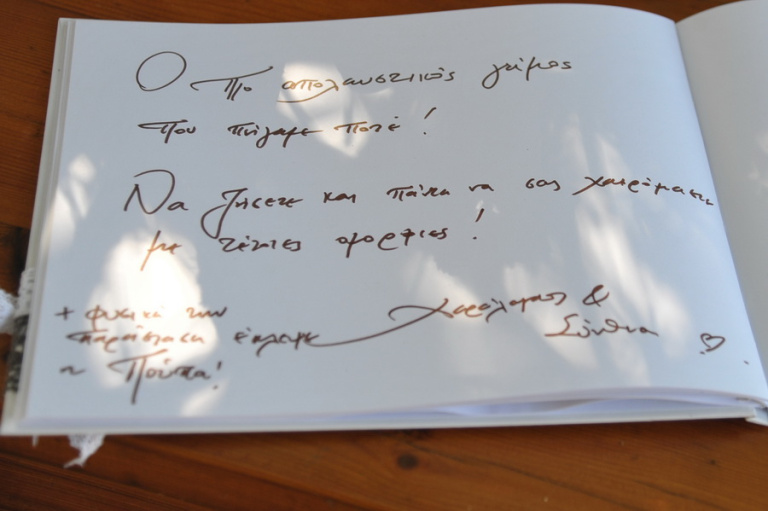 Ο πιο απολαυστικός γάμος
που πήγαμε ποτέ!
Να ζήσετε και πάντα να σας χαιρόμαστε
με τέτοιες ομορφιές!
Χαράλαμπος &
Σύνθια
+ φυσικά την
παράσταση έκλεψε
η Πούπα!